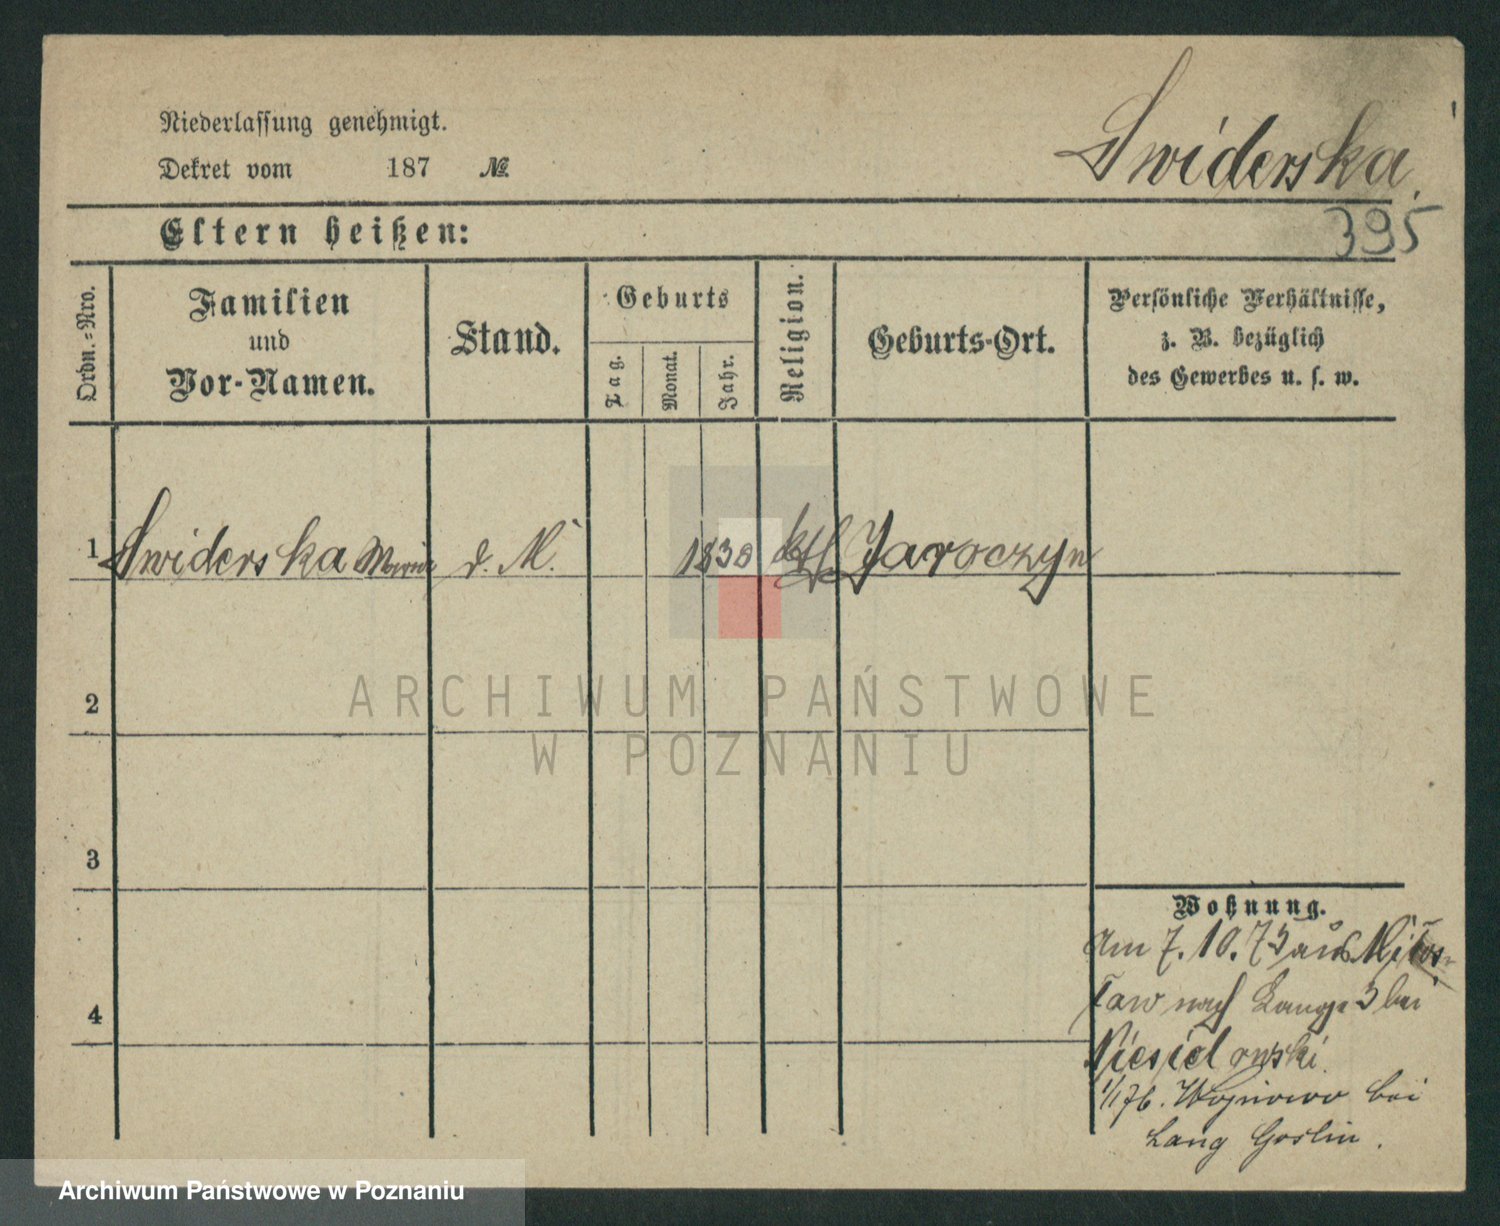 Niederlassung genehmigt.
Dekret vom 187 №
Swiderska.
Eltern heißen:
395
Ordn.-Nro.
Familien
und
Vor-Namen.
Stand.
Geburts
Tag.
Monat.
Jahr.
Religion.
Geburts-Ort.
Persönliche Verhältnisse,
z. B. bezüglich
des Gewerbes u. s. w.
1 Swiderska d. M. 1838 kth Jaroczyn
2
3
4
Wohnung.
Am 7. 10. 75 aus Miłos-
ław nach Lange 3 bei
Niesiolowski.
1/1 76. Wojnowo bei
Lang Goslin.
ARCHIWUM PAŃSTWOWE
W POZNANIU
Archiwum Państwowe w Poznaniu